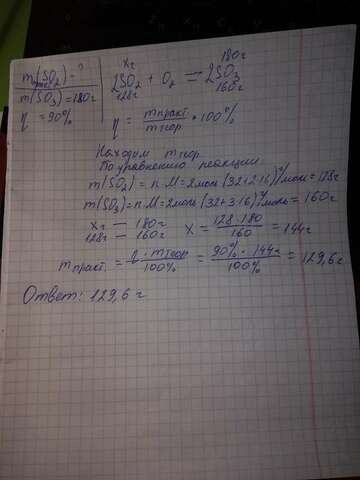 mпракт(SO₂) = ?
m(SO₃) = 180г
η = 90%
xг 180г
2SO₂ + O₂ = 2SO₃
128г 160г
η = mпракт / mтеор · 100%
Находим mтеор
По уравнению реакции
m(SO₂) = n·M = 2моль·(32+2·16)г/моль = 128г
m(SO₃) = n·M = 2моль·(32+3·16)г/моль = 160г
xг — 180г
128г — 160г
x = 128·180 / 160 = 144г
mпракт. = η · mтеор / 100% = 90% · 144г / 100% = 129,6г
Ответ: 129,6 г